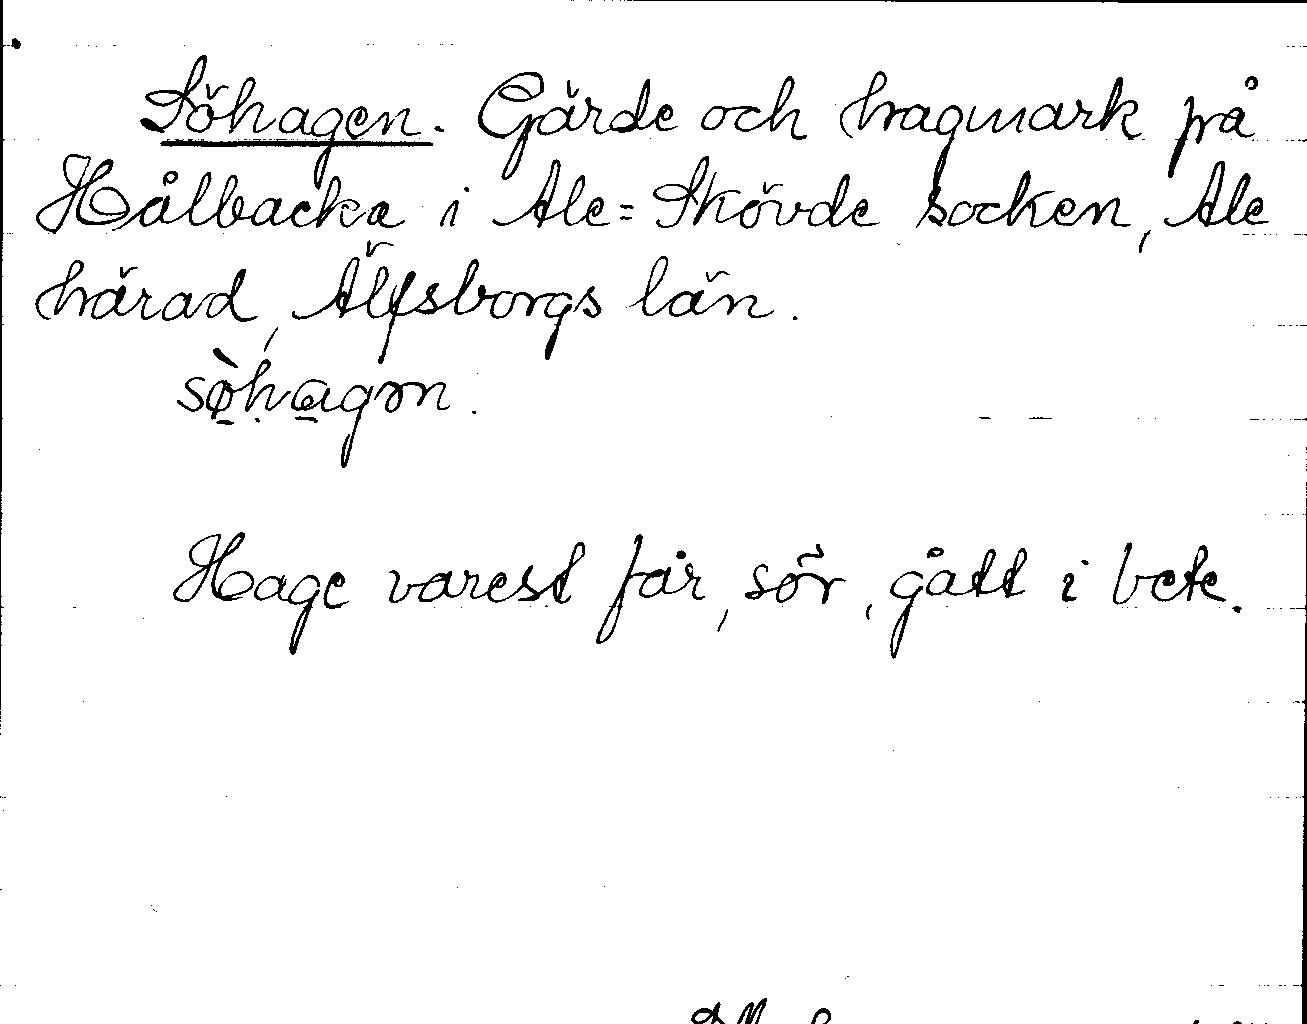 Söhagen. Gärde och hagmark på
Hålbacka i Ale=Skövde socken, Ale
härad, Älfsborgs län.
sø̀hagən.
Hage varest får, sör, gått i bete.